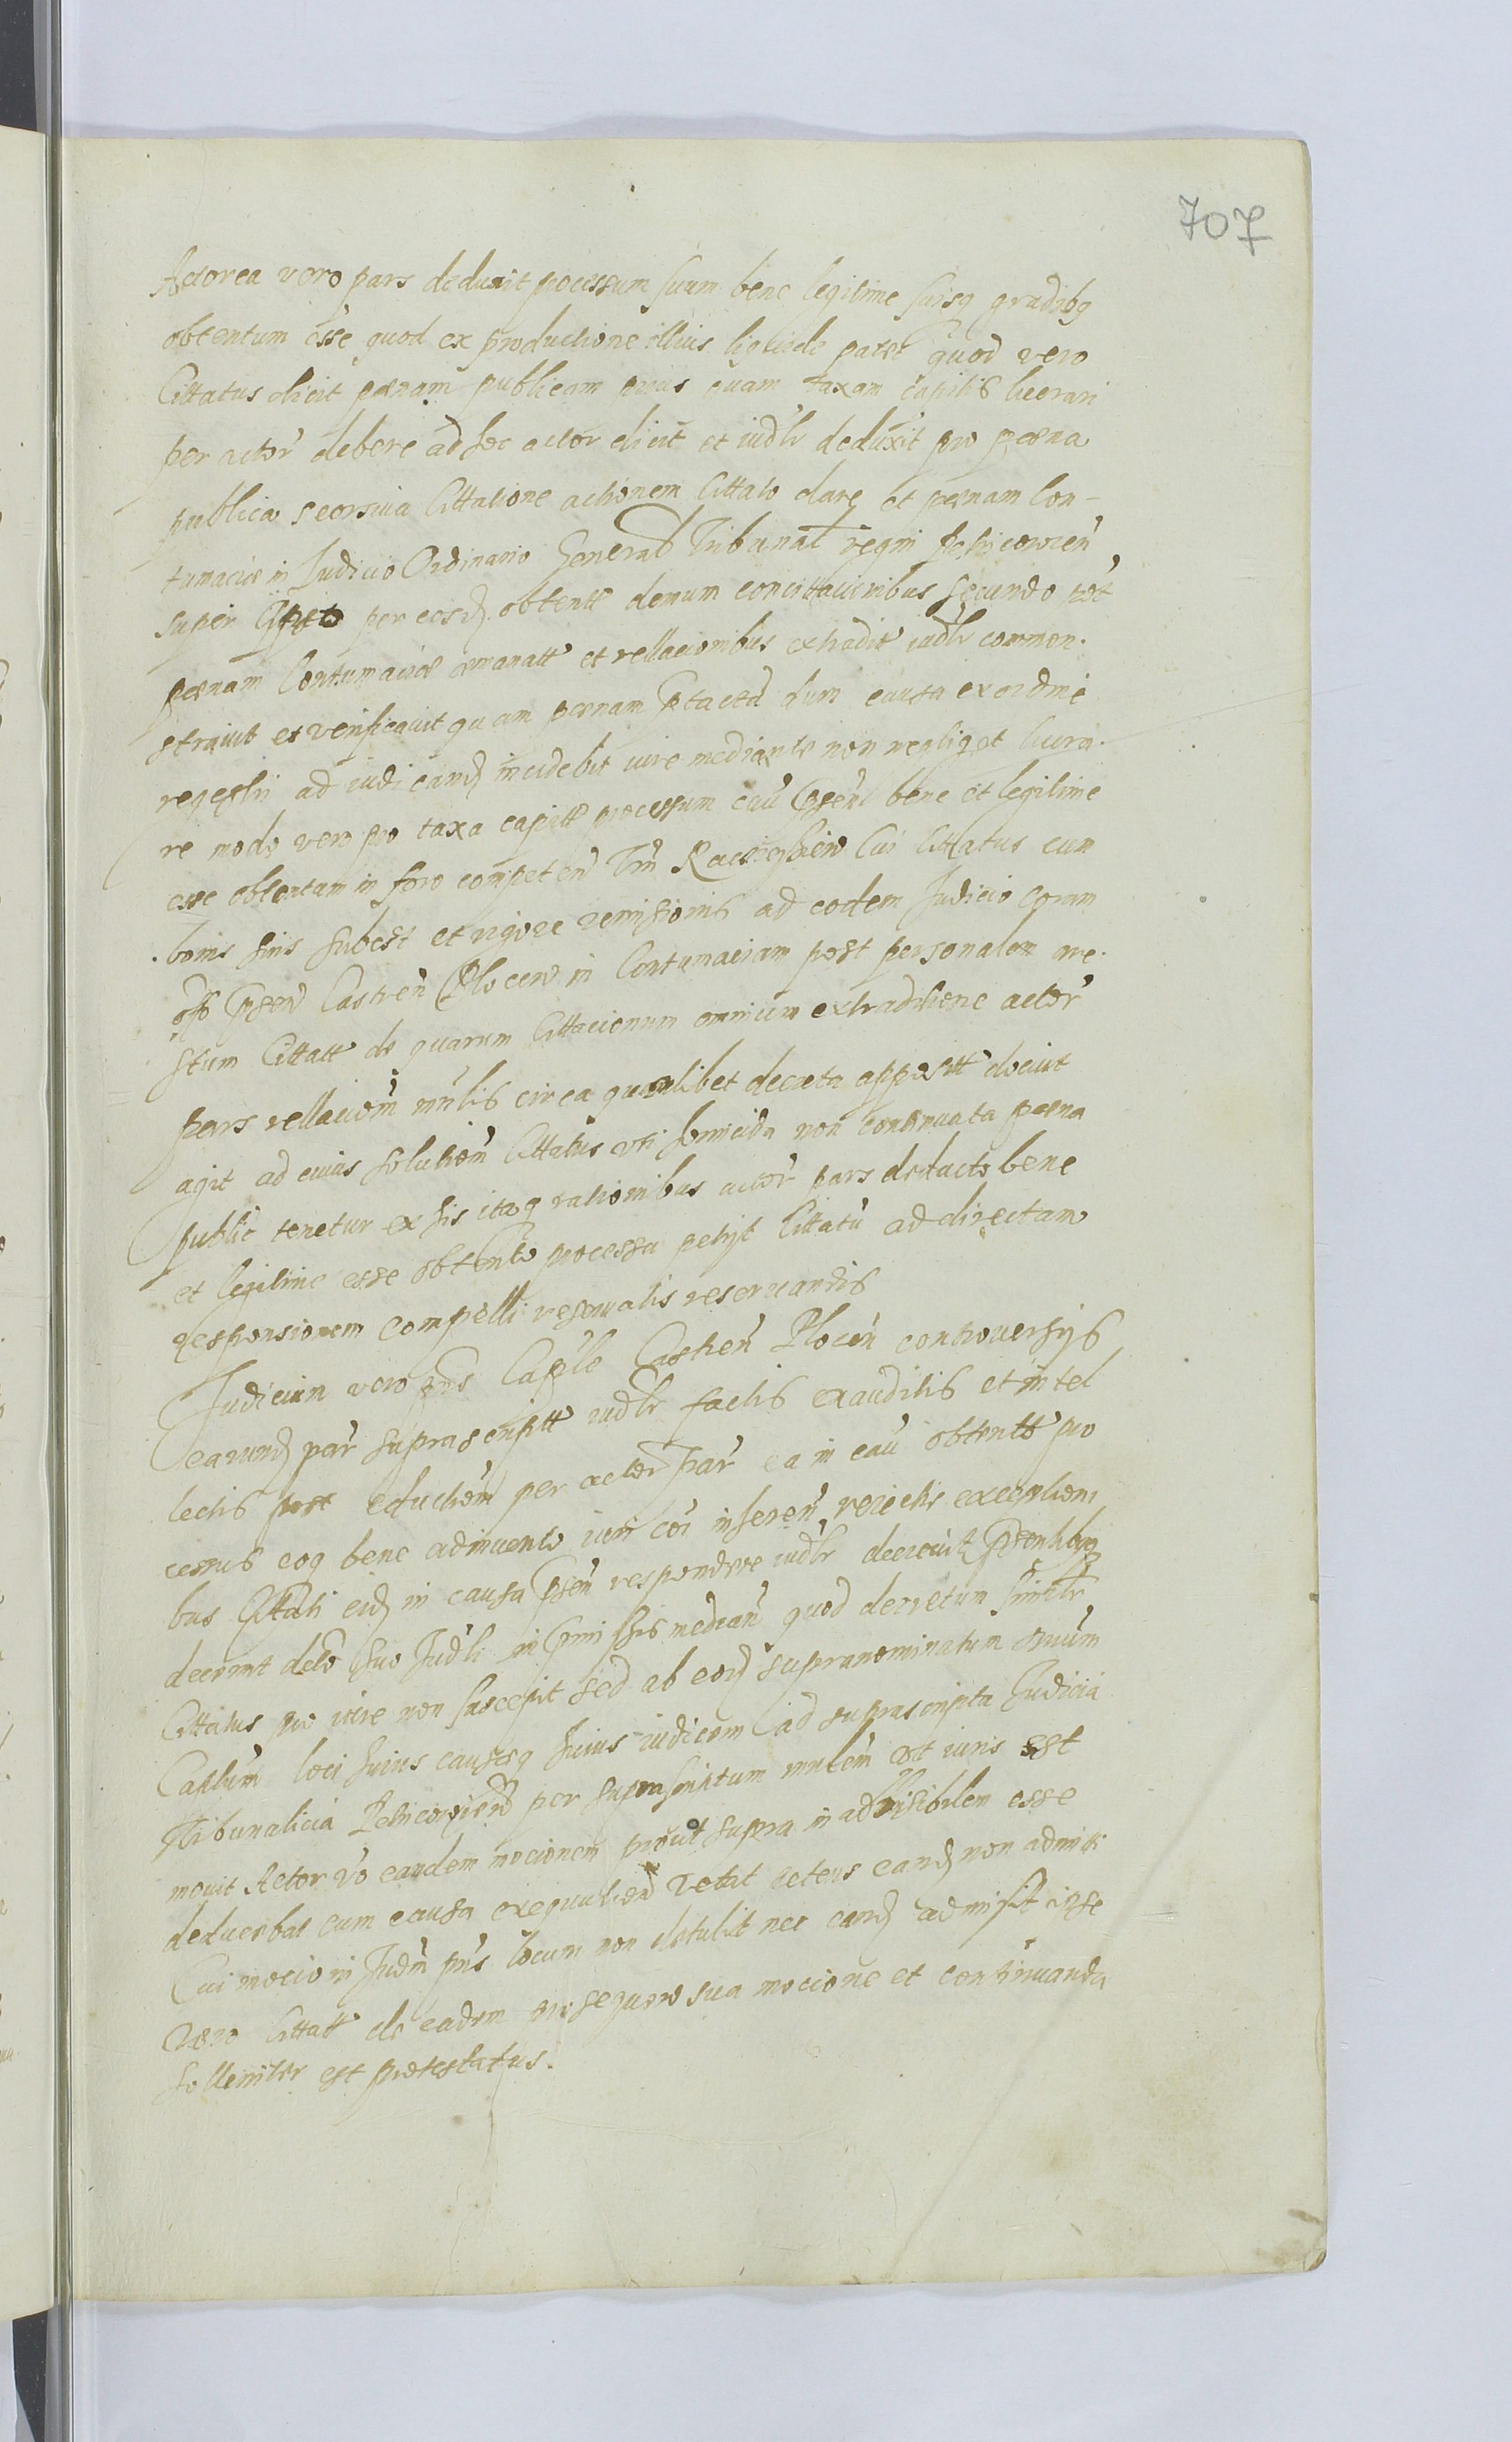 707
Actorea vero pars deduxit processum suum bene legitime suisq gradibq
obtentum esse quod ex productione illius liquide patet quod vero
Cittatus dicit pænam publicam prius quam taxam capitis lucrari
per actor debere ad hoc actor dicit et iudlr deduxit pro pæna
publica seorsiva Cittatione actionem Cittato dare et pænam Con-
tumaciæ in Iudicio Ordinario General Tribunal regni Petricovien
super per eosd obtent demum concitacionibus secundo
pænam Contumaciæ emanatt et rellacionibus extradit iudlr common-
stravit et verificavit quam pænam ptactã dum causa ex ordine
regestri ad iudicand incidebit iure mediante non negliget lucra-
re modo vero pro taxa capitt processum cau psen bene et legitime
esse obtentam in foro competen Trn Raciąsien Cui Cittatus cum
bonis suis subest et rigore remissionis ad eodem Iudicio Coram
offo psen Castren Plocen in Contumaciam post personalem are-
stum Cittatt de quarum Cittacionum omnium extraditione actor
pars rellacion mnlis circa quamlibet decreta apposit docuit
agit ad cuius solution Cittatus uti homicida non continuata pæna
public tenetur ex his itaq rationibus actor pars deducto bene
et legitime esse obtento processu petijt Cittatu ad directam
responsionem compelli reservatis reservandis
Iudicium vero pns Caplle Castren Plocen controversijs
earund par suprascriptt iudlr factis exauditis et intel
lectis post eduction per actor par ea in cau obtentt pro
cessus eoq bene adinvento iuri coi inheren reiectis exceptioni
bus Cittati eid in causa psen respondere iudlr decrevit psentibq
decernit delo suo Iudli in pmissis median quod decretum similr
Cittatus pro iure non suscepit sed ab eod supranominatum
Captum loci huius causæq huius iudicem ad suprascripta Iudicia
Tribunalicia Petricovien per suprascriptum mnlem ut iuris est
movit Actor vo eandem mocionem prout supra in admisibilem esse
deducebat cum causa exequution vetat eand non admitti
Cui mocioni Iudm pns locum non detulit nec eand admisit ipse
vero Cittatt de eadem prosequen sua mocione et continuanda
solleniter est protestatus.